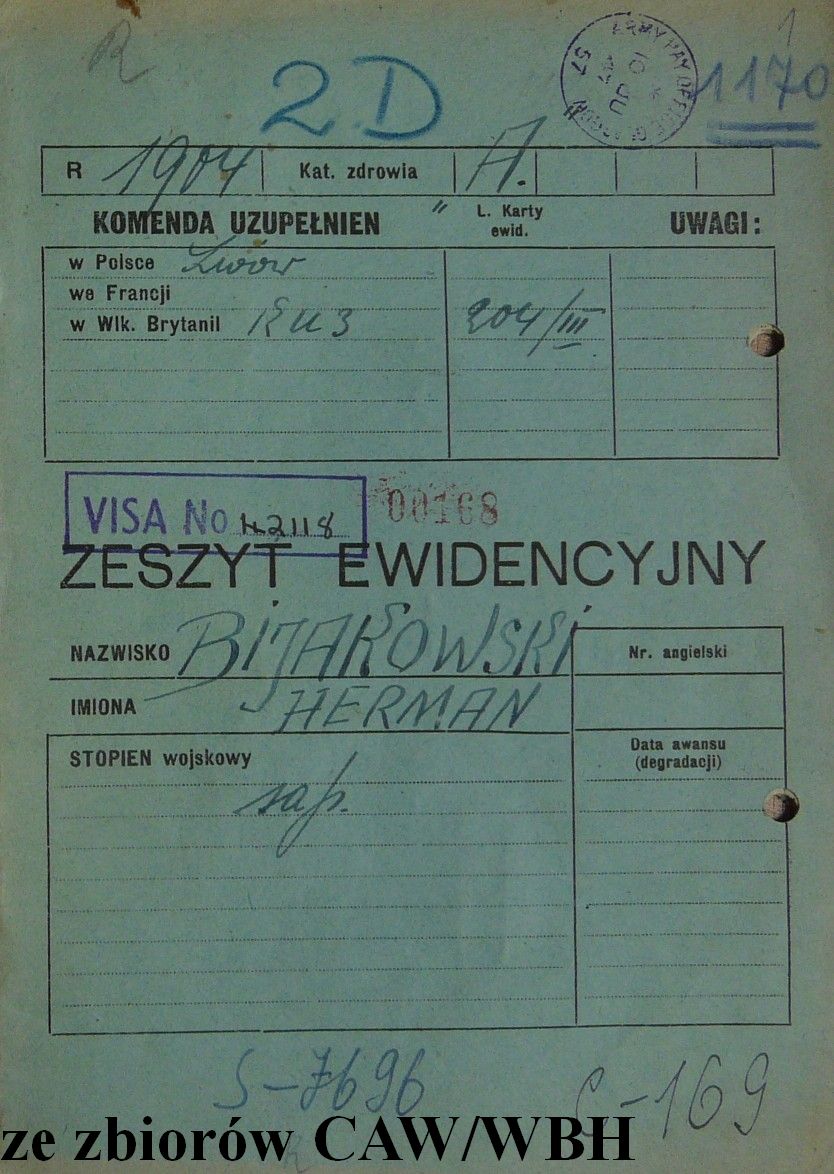 R
1
2D
1170
ARMY PAY OFFICE
57
R 1904 Kat. zdrowia A.
KOMENDA UZUPEŁNIEN " L. Karty ewid. UWAGI:
w Polsce Lwów
we Francji
w Wlk. Brytanil KU3 204/III
VISA No 42118 00168
ZESZYT EWIDENCYJNY
NAZWISKO BIJAKOWSKI Nr. angielski
IMIONA HERMAN
STOPIEN wojskowy Data awansu
(degradacji)
sap.
S-7696
C-169
ze zbiorów CAW/WBH